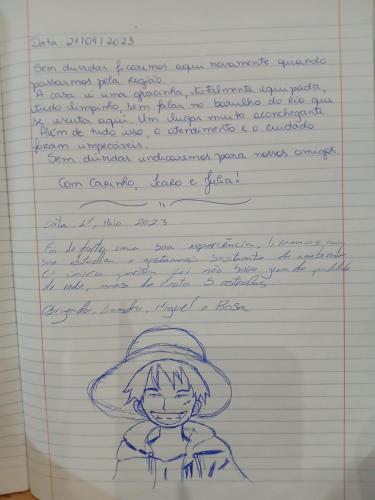 Data: 21/04/2023
Sem dúvidas ficaremos aqui novamente quando
passarmos pela região.
A casa é uma gracinha, totalmente equipada,
tudo limpinho, sem falar no barulho do Rio que
se escuta aqui. Um lugar muito aconchegante.
Além de tudo isso, o atendimento e o cuidado
foram impecáveis.
Sem dúvidas indicaremos para nossos amigos.
Com Carinho, Icaro e Julia!
Data, 1º, Maio 2023
Foi de fato uma boa experiência, tivemos uma
boa estadia e gostamos bastante do ambiente
O único porém foi não haver grande
de rede, mas de resto 5 estrelas,
Obrigado, Leandro, Miguel e Rosa